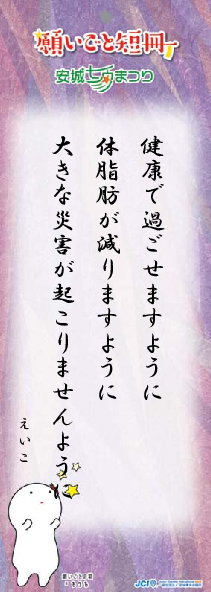 願いごと短冊
安城七夕まつり
健康で過ごせますように
体脂肪が減りますように
大きな災害が起こりませんように
えいこ
JCI